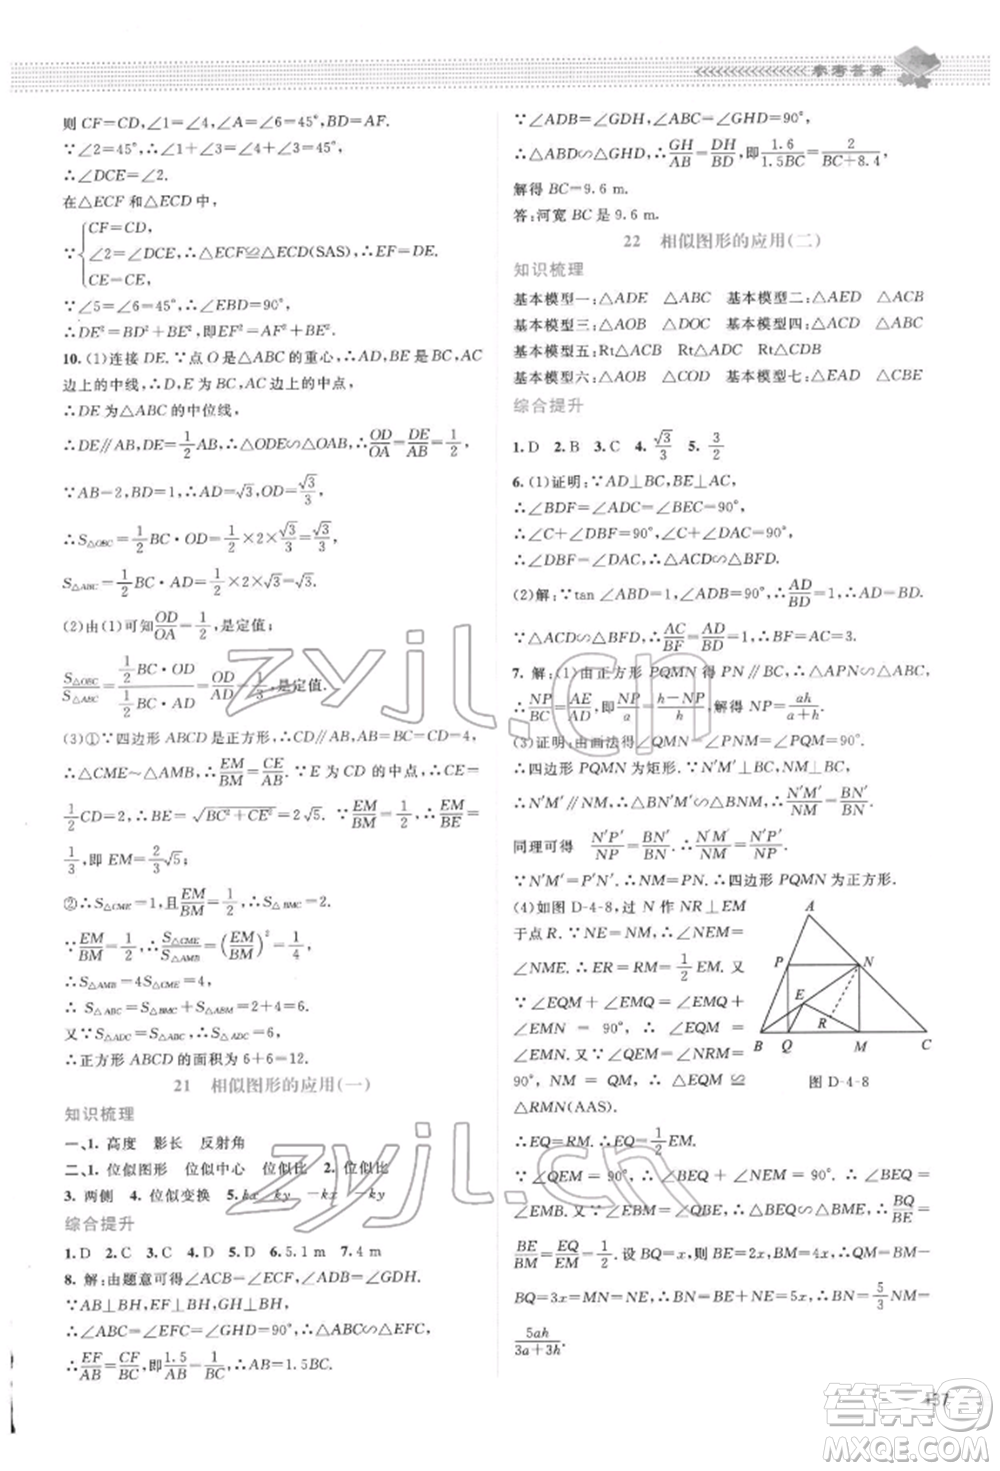 参考答案
则 CF=CD,∠1=∠4,∠A=∠6=45°,BD=AF.
∵∠2=45°,∴∠1+∠3=∠3+∠4=45°,
∴∠DCE=∠2.
在△ECF 和△ECD 中,
∵{CF=CD, ∠2=∠DCE, CE=CE, ∴△ECF≌△ECD(SAS),∴DE=EF.
∵∠5=∠6=45°,∴∠EBD=90°,
∴DE²=BD²+BE²,即EF²=AF²+BE².
10. (1)连接 DE.∵点 O 是△ABC 的重心,∴AD,BE 是 BC,AC
边上的中线,∴D,E 为 BC,AC 边上的中点,
∴DE 为△ABC 的中位线,
∴DE∥AB,DE=1/2AB,∴△ODE∽△OAB,∴OD/OA=DE/AB=1/2.
∵AB=2,BD=1,∴AD=√3,OD=√3/3,
∴S△OBC=1/2BC·OD=1/2×2×√3/3=√3/3,
S△ABC=1/2BC·AD=1/2×2×√3=√3.
(2)由(1)可知OD/OA=1/2,是定值;
S△OBC/S△ABC=(1/2BC·OD)/(1/2BC·AD)=OD/AD=1/3,是定值.
(3)①∵四边形 ABCD 是正方形,∴CD∥AB,AB=BC=CD=4,
∴△CME~△AMB,∴EM/BM=CE/AB.∵E 为 CD 的中点,∴CE=
1/2CD=2,∴BE=√(BC²+CE²)=2√5.∵EM/BM=1/2,∴EM/BE=
1/3,即 EM=2/3√5;
②∴S△CME=1,且EM/BM=1/2,∴S△BMC=2,
∵EM/BM=1/2,∴S△CME/S△AMB=(EM/BM)²=1/4,
∴S△AMB=4S△CME=4,
∴S△ABC=S△BMC+S△ABM=2+4=6.
又∵S△ADC=S△ABC,∴S△ADC=6,
∴正方形 ABCD 的面积为 6+6=12.
21 相似图形的应用(一)
知识梳理
一、1. 高度 影长 反射角
二、1. 位似图形 位似中心 位似比 2. 位似比
3. 两侧 4. 位似变换 5. kx ky -kx -ky
综合提升
1. D 2. C 3. C 4. D 5. D 6. 5.1 m 7. 4 m
8. 解:由题意可得∠ACB=∠ECF,∠ADB=∠GDH.
∵AB⊥BH,EF⊥BH,GH⊥BH,
∴∠ABC=∠EFC=∠GHD=90°,∴△ABC∽△EFC,
∴EF/AB=CF/BC,即1.5/AB=1/BC,∴AB=1.5BC.
∵∠ADB=∠GDH,∠ABC=∠GHD=90°,
∴△ABD∽△GHD,∴GH/AB=DH/BD,即1.6/1.5BC=2/(BC+8.4),
解得 BC=9.6 m.
答:河宽 BC 是 9.6 m.
22 相似图形的应用(二)
知识梳理
基本模型一:△ADE △ABC 基本模型二:△AED △ACB
基本模型三:△AOB △DOC 基本模型四:△ADC △ACB
基本模型五:Rt△ACB Rt△ADC Rt△CDB
基本模型六:△AOB △COD 基本模型七:△EAD △CBE
综合提升
1. D 2. B 3. C 4. √3/3 5. 3/2
6. (1)证明:∵AD⊥BC,BE⊥AC,
∴∠BDF=∠ADC=∠BEC=90°,
∴∠C+∠DBF=90°,∠C+∠DAC=90°,
∴∠DBF=∠DAC,∴△ACD∽△BFD.
(2)解:∵tan∠ABD=1,∠ADB=90°,∴AD/BD=1,∴AD=BD.
∵△ACD∽△BFD,∴AC/BF=AD/BD=1,∴AC=BF=3.
7. 解:(1)由正方形 PQMN 得 PN∥BC,∴△APN∽△ABC,
∴NP/BC=AE/AD,即NP/a=(h-NP)/h,解得 NP=ah/(a+h).
(3)证明:由画法得∠QMN=∠PNM=∠PQM=90°,
∴四边形 PQMN 为矩形.
∵N′M′∥MN,∴△BN′M′∽△BNM,∴N′M′/NM=BN′/BN.
同理可得 N′P′/NP=BN′/BN.∴N′M′/NM=N′P′/NP.
∵N′M′=N′P′,∴NM=PN.∴四边形 PQMN 为正方形.
(4)如图 D-4-8,过 N 作 NR⊥EM
于点 R.∵NE=NM,∴∠NEM=
∠NME.∴ER=RM=1/2EM.又
∵∠EQM+∠EMQ=∠EMQ+
∠EMN=90°,∴∠EQM=∠EMN.
又∵∠QEM=∠NRM=
90°,NM=QM,∴△EQM≌
△RMN(AAS).
∴EQ=RM,∴EQ=1/2EM.
∵∠QEM=90°,∴∠BEQ+∠NEM=90°,
∴∠BEQ=∠EMB.又∵∠EBM=∠QBE,∴△BEQ∽△BME,∴BQ/BE=
BE/BM=EQ/EM=1/2.设 BQ=x,则 BE=2x,BM=4x,∴QM=BM-
BQ=3x=MN=NE,∴BN=BE+NE=5x,∴BN=5/3NM=
5ah/(3a+3h).
A
P
N
E
R
B
Q
M
C
图 D-4-8
zyjl.cn
zyjl.cn
答案圈
MXQE.COM